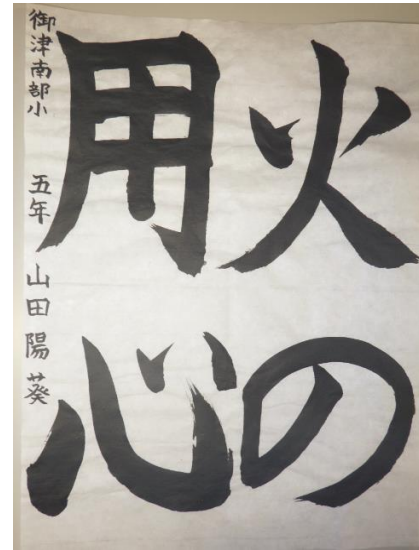 火の
用心
御津南部小 五年 山田陽葵